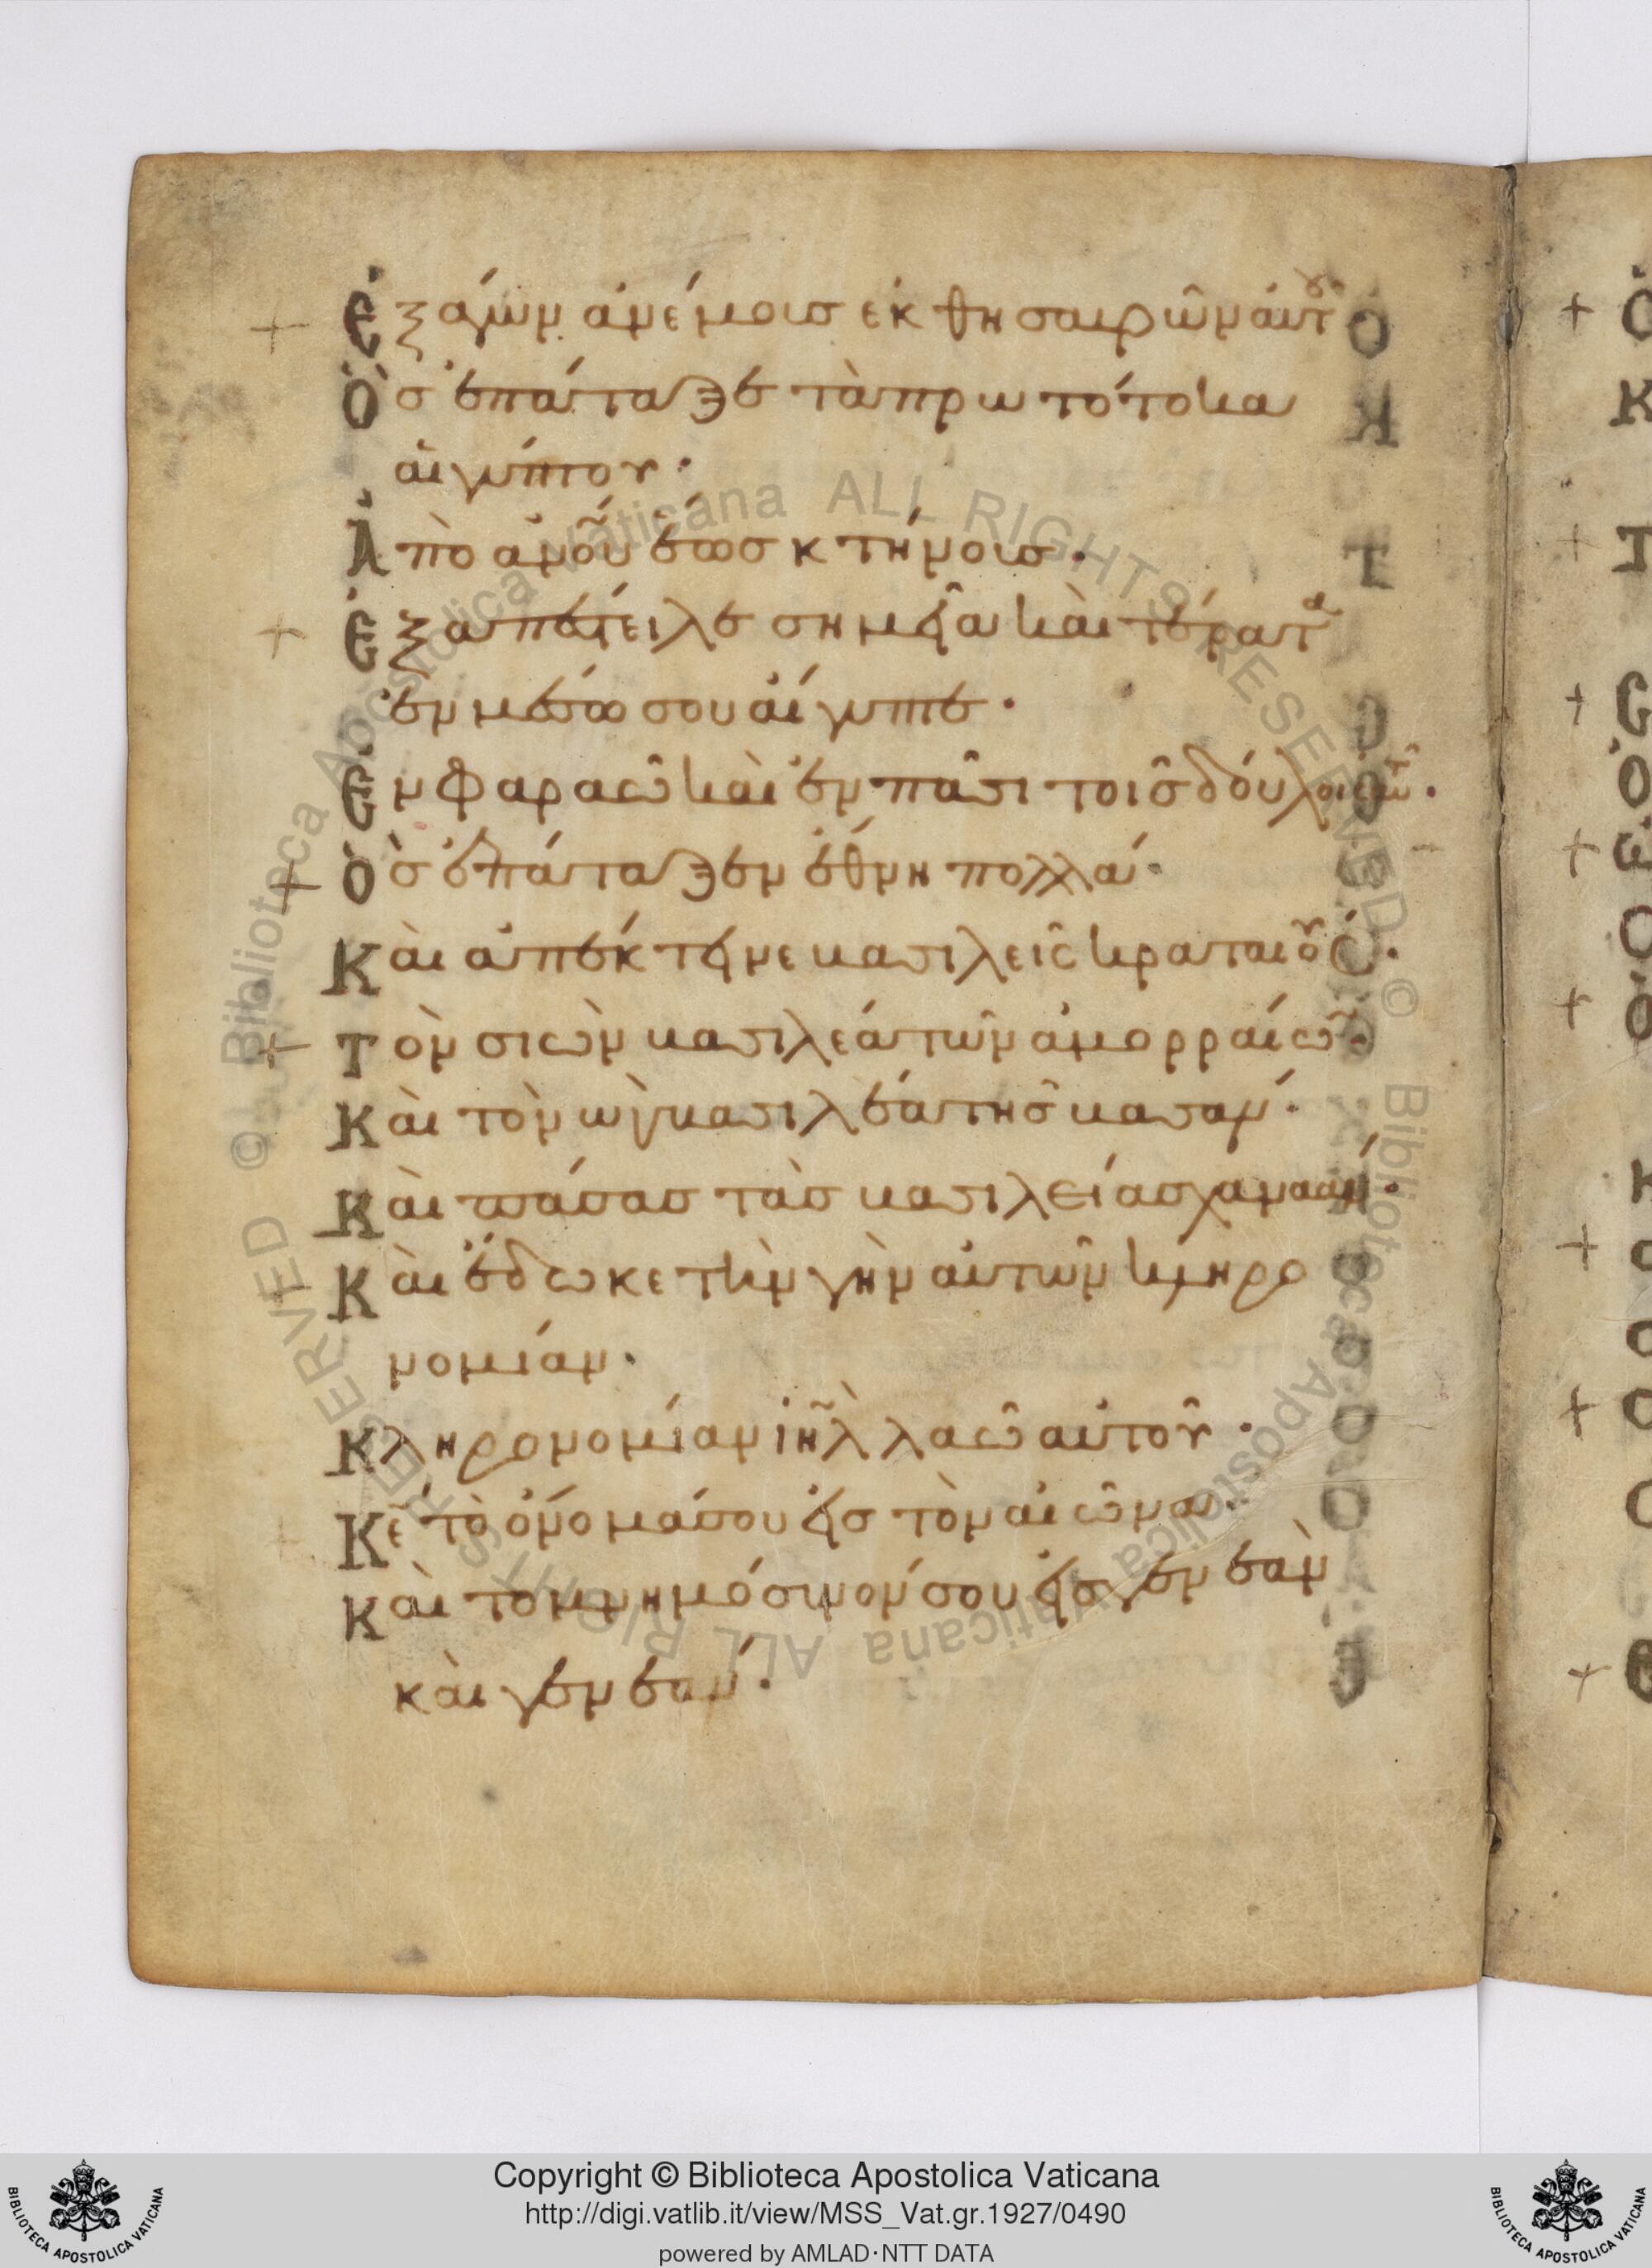 + Ἐξαγὼν ἀνέμουσ ἐκ θησαυρῶν αὐτοῦ
Ὃσ ἐπάταξε τὰ πρωτότοκα
αἰγύπτου·
Ἀπὸ ἀν̅ο̅υ̅ ἕωσ κτήνουσ·
+ Ἐξαπέστειλε σημεῖα καὶ τέρατα
ἐν μέσω σου αἴγυπτε·
Ἐν φαραῶ καὶ ἐν πᾶσι τοῖσ δούλοισ αὐτοῦ·
+ Ὃσ ἐπάταξεν ἔθνη πολλά·
Καὶ ἀπέκτεινε βασιλεῖς κραταιούς·
+ Τὸν σιὼν βασιλέα τῶν ἀμορραίων·
Καὶ τὸν ὼγ βασιλέα τῆσ βασαν·
Καὶ πάσασ τὰσ βασιλείασ χαναάν·
Καὶ ἔδωκε τὴν γὴν αὐτῶν κληρο
νομίαν·
Κληρονομίαν ἰη̅λ̅ λαῶ αὐτοῦ·
Κ̅ε̅ τὸ ὄνομά σου εἰσ τὸν αἰῶνα·
Καὶ το μνημόσυνόν σου εἰσ γενεὰν
καὶ γενεάν·
+ Ὁ
Κ
+ Τ
+ Ε
Ὁ
+ Ε
Ο
+ Ὁ
Κ
+ Ο
Ο
+ Ο
Ο
+ Ε
© Biblioteca Apostolica Vaticana ALL RIGHTS RESERVED © Biblioteca Apostolica Vaticana ALL RIGHTS RESERVED
Copyright © Biblioteca Apostolica Vaticana
http://digi.vatlib.it/view/MSS_Vat.gr.1927/0490
powered by AMLAD·NTT DATA
BIBLIOTECA APOSTOLICA VATICANA
BIBLIOTECA APOSTOLICA VATICANA